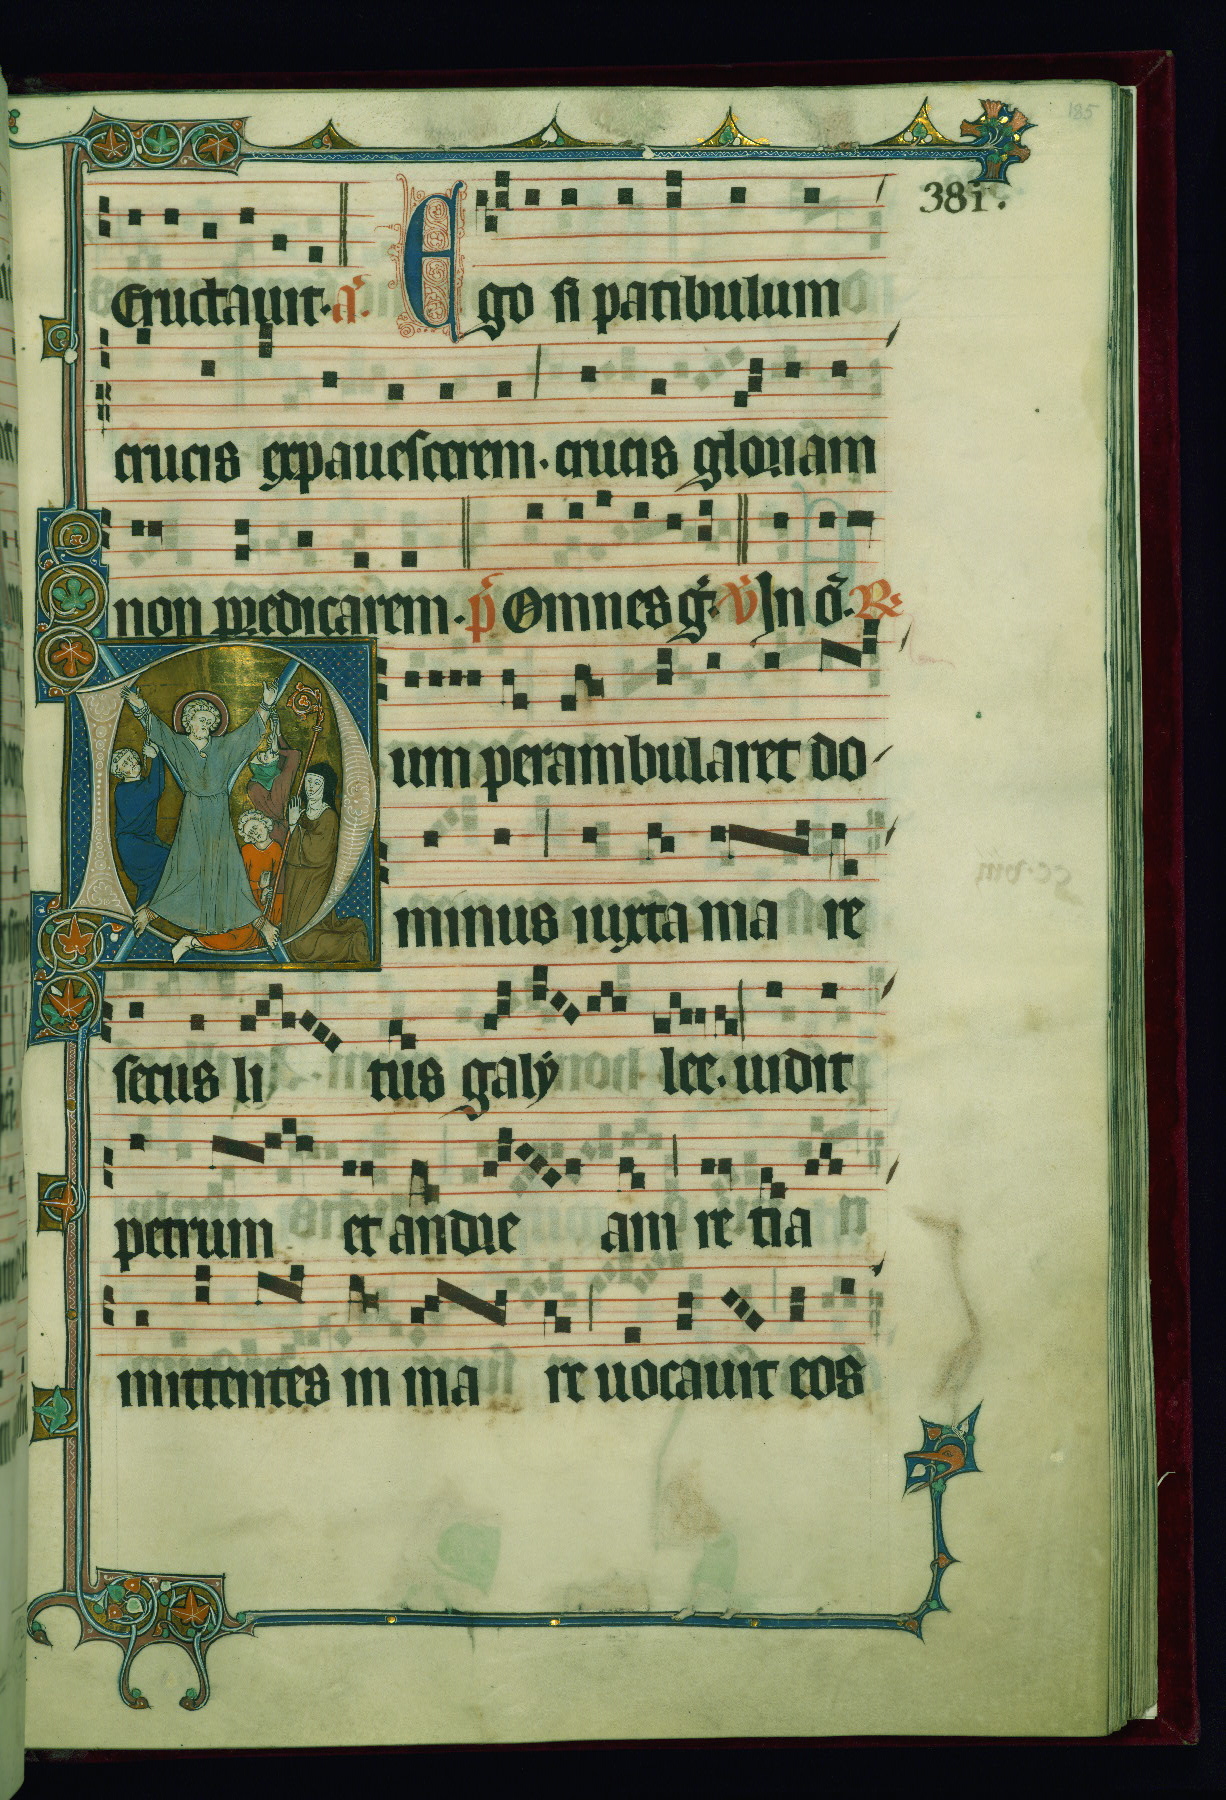 185
381.
Eructauit. a. Ego si patibulum
crucis expauescerem. crucis gloriam
non predicarem. p̄ Omnes ḡ. v̄ In ō. R.
Dum perambularet do
minus iuxta ma re
secus li tus galy lee. uidit
petrum et andre am re tia
mittentes in ma re uocauit eos